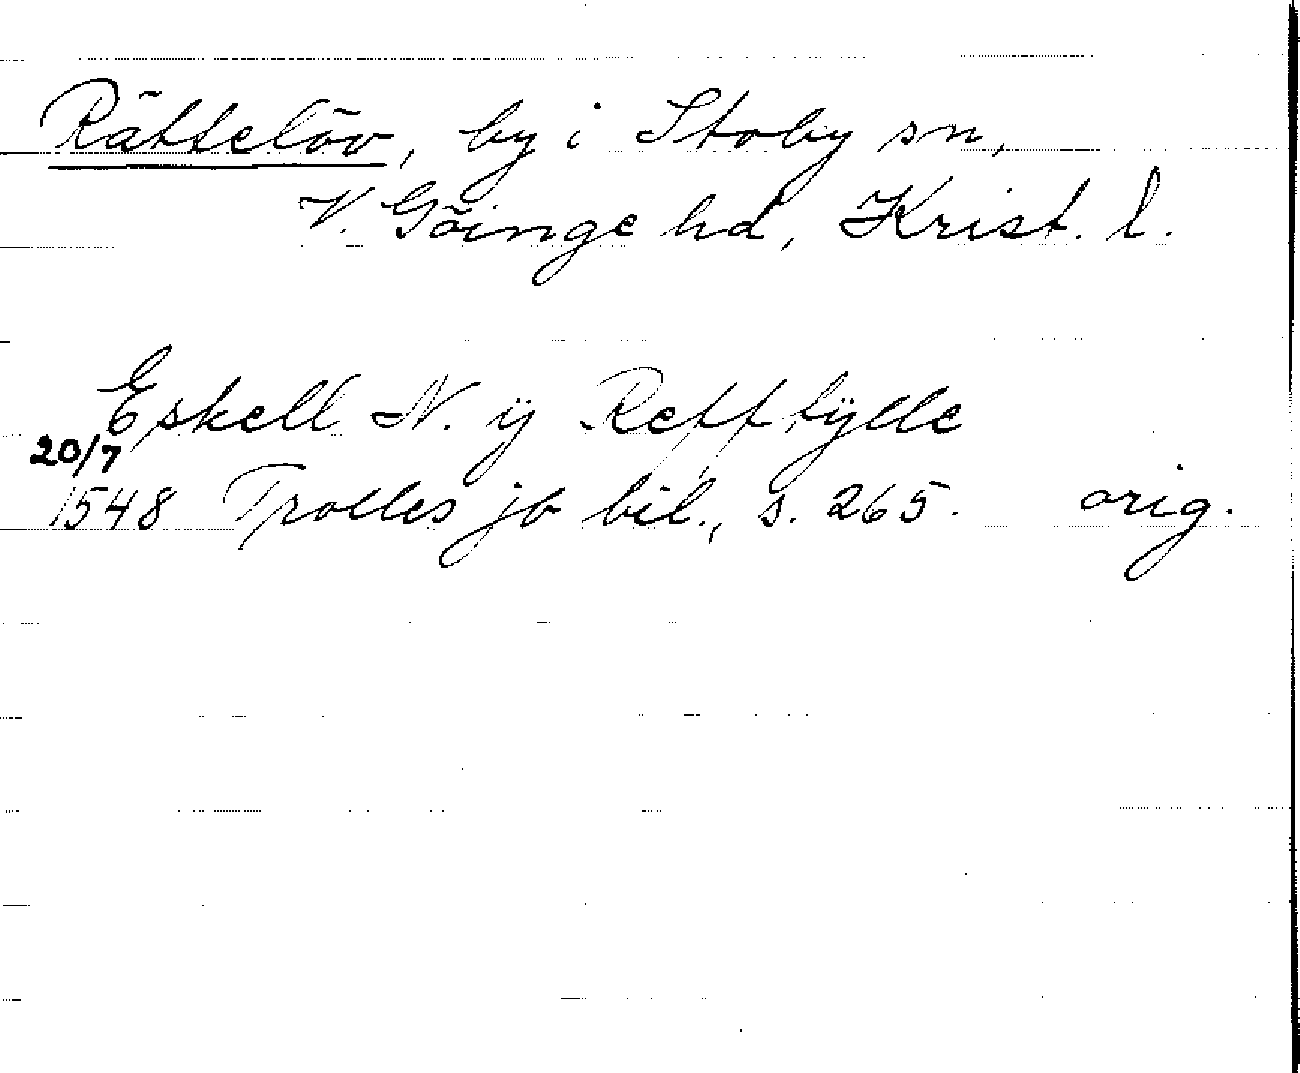 Rättelöv, by i Stoby sn,
V. Göinge hd, Krist. l.
Eskell N. ÿ
20/7
1548 Trolles jb bil., s. 265. orig.